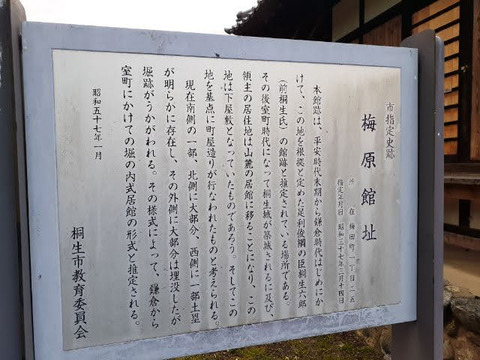 市指定史跡
梅原館址
所在 梅田町一丁目二一五
指定年月日 昭和三十七年二月十四日
本館跡は、平安時代末期から鎌倉時代はじめにか
けて、この地を根拠と定めた足利俊綱の臣桐生六郎
(前桐生氏)の館跡と推定されている場所である。
その後室町時代になって桐生城が築城されるに及び、
領主の居住地は山麓の居館に移ることになり、この
地は下屋敷となっていたものであろう。そしてこの
地を基点に町屋造りが行なわれたものと考えられる。
現在南側の一部、北側に大部分、西側に一部土塁
が明らかに存在し、その外側に大部分は埋没したが
堀跡がうかがわれる。その様式によって、鎌倉から
室町にかけての堀の内式居館の形式と推定される。
昭和五十七年一月
桐生市教育委員会